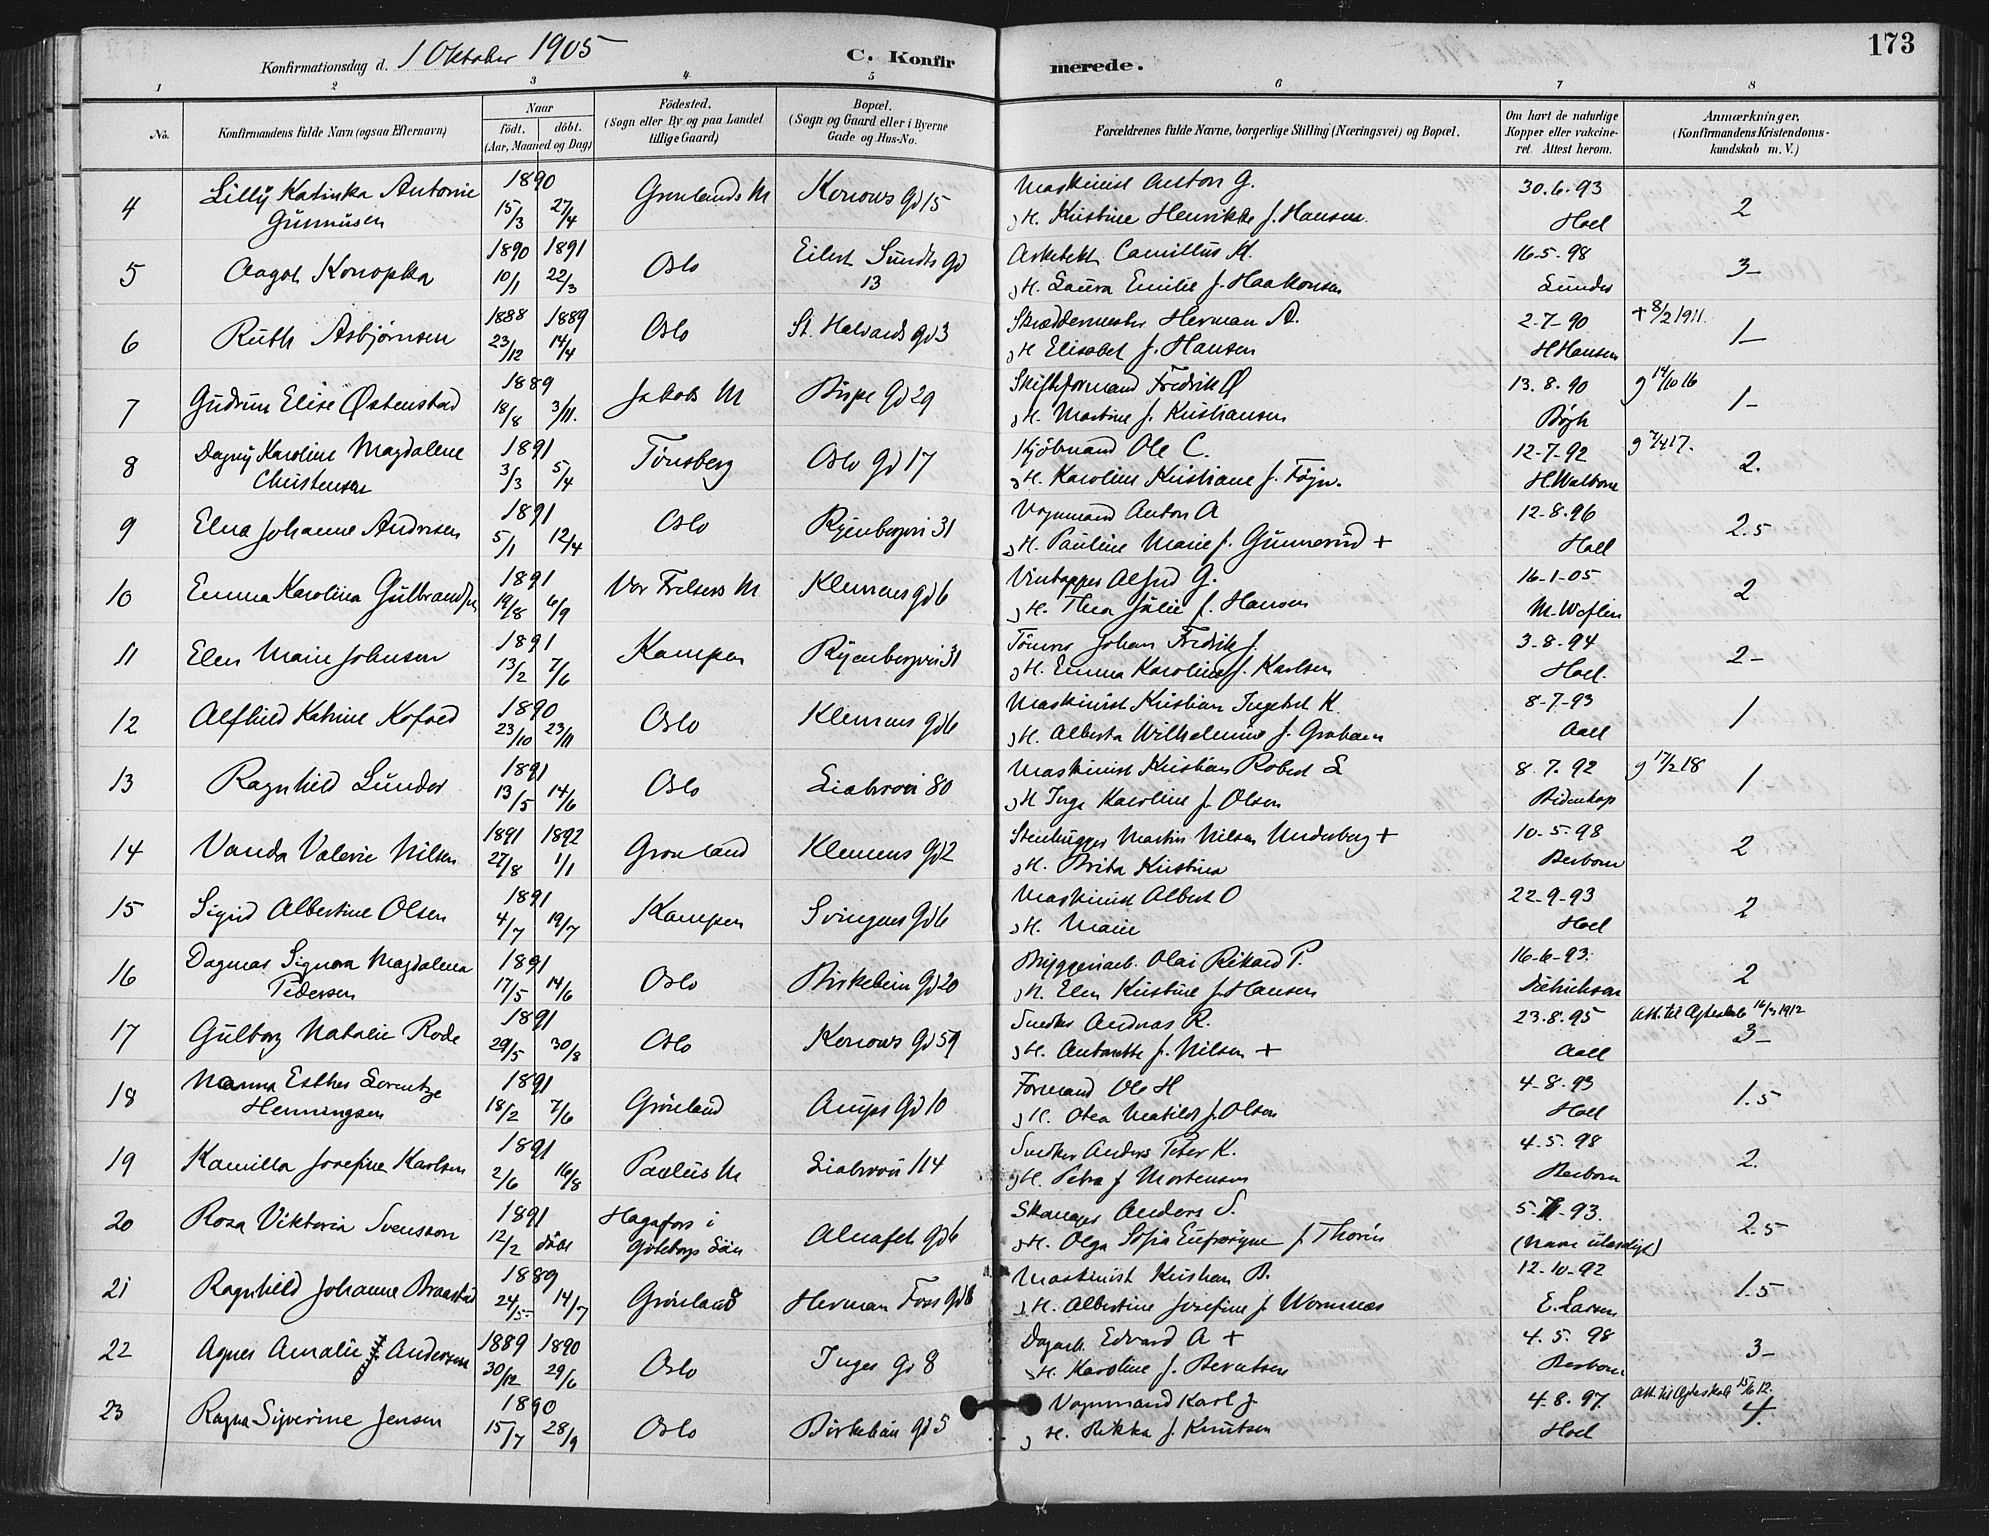 173
Konfirmationsdag d. 1 Oktober 1905
C. Konfirmerede.
1 2 3 4 5 6 7 8
No.
Konfirmandens fulde Navn (ogsaa Efternavn)
Naar
födt. döbt.
(Aar, Maaned og Dag)
Födested.
(Sogn eller By og paa Landet
tillige Gaard)
Bopæl.
(Sogn og Gaard eller i Byerne
Gade og Hus-No.
Forældrenes fulde Navne, borgerlige Stilling (Næringsvei) og Bopæl.
Om havt de naturlige
Kopper eller vakcine-
ret. Attest herom.
Anmærkninger,
(Konfirmandens Kristendoms-
kundskab m. V.)
4 Lilly Katinka Antonie 1890 Grønlands M Konows Gd 15 Maskinist Anton G. 30.6.93 2
Gunnusen 15/3 27/4 H. Kristine Henrikke f. Hansen. Hoel
5 Aagot Konopka 1890 1891 Oslo Eilert Sundts Gd Arkitekt Camillus K. 16-5-98 3-
10/1 22/3 13 H. Laura Emilie f. Haakonsen Lunder
6 Ruth Asbjørnsen 1888 1889 Oslo St. Halvards gd 3 Skræddermester Herman A. 2-7-90 + 8/2 1911. 1-
23/12 14/4 H Elisabet f. Hansen H Hansen
7 Gudrun Elise Østenstad 1889 Jakobs M Bispe Gd 29 Skifteformand Fredrik Ø 13.8.90 g 14/10 16 1-
18/8 3/11. H. Martine f. Kristiansen Bøgh
8 Dagny Karoline Magdalene 1891 Tønsberg Oslo Gd 17 Kjøbmand Ole C. 12-7-92 g 7/4 17. 2.
Christensen 3/3 5/4 H. Karoline Kristiane f. Føyn. H. Walborn
9 Elna Johanne Andresen 1891 Oslo Ryenbergvei 31 Vognmand Anton A 12-8-96 2.5
5/1 12/4 H. Pauline Marie f. Gunnerud + Hoel
10 Emma Karolina Gulbrandsen 1891 Vor Frelsers M Klemens gd 6 Vintapper Alfred G. 16-1-05 2
19/8 6/9 H. Thea Julie f. Hansen
11 Elen Marie Johnsen 1891 Kampen Ryenbergvei 31 Tømrer Johan Fredrik J. 3-8-94 2-
13/2 7/6 H. Emma Karoline f. Karlsen Hoel.
12 Alfhild Katrine Kofoed 1890 Oslo Klemens gd 6 Maskinist Kristian Ingebrt K. 8-7-93 1
23/10 23/11 H. Alberta Wilhelmine f. Graham Aall
13 Ragnhild Lunder 1891 Oslo Liabrovei 80 Maskinist Kristian Robert L 8.7.92 g 17/2 18 1-
13/5 14/6 H Inga Karoline f. Olsen Bidenkap
14 Vanda Valerie Nilsen 1891 1892 Grønland Klemens Gd 2 Stenhugger Martin Nilsen Underberg + 10-5-98 2
27/8 1/1 H. Brita Kristina Berbom
15 Sigrid Albertine Olsen 1891 Kampen Svingens Gd 6 Maskinist Albert O 22-9-93 2
4/7 19/7 H. Marie Hoel
16 Dagmar Signora Magdalena 1891 Oslo Birkebein Gd 20 Bryggeriarb. Olai Rikard P. 16-6-93. 2
Pedersen 17/5 14/6 H. Elen Kristine f. Hansen Dietrichson
17 Gulborg Natalie Rode 1891 Oslo Konows Gd 59 Snedker Andreas R. 23.8.95 Att. til Ægteskab 16/3 1912 3-
29/5 30/8 H. Antonette f. Nilsen + Aall
18 Nanna Esther Lorentze 1891 Grønland Amps Gd 10 Formand Ole H 4-8-93 1.5
Henningsen 18/2 7/6 H. Otea Matilde f. Olsen Hoel
19 Kamilla Josefine Karlsen 1891 Paulus M Liabrovei 114 Snedker Anders Peter K. 4-5-98 2.
2/6 16/8 H. Petra f Mortensen Berbom
20 Rosa Viktoria Svensson 1891 Hagafors i Alnafet Gd 6 Skomager Anders S. 5-7-93. 2.5
12/2 døbt Gøteborgs Län H. Olga Sofia Eufrosyne f. Thorin (Navn ulæseligt)
21 Ragnhild Johanne Braastad 1889 Grønland Herman Foss Gd 8 Maskinist Kristian B. 12-10-92 1.5
24/5 14/7 H. Albertine Josefine f. Wormnæs E. Larsen
22 Agnes Amalie Andersen 1889 1890 Oslo Inges Gd 8 Dagarb. Edvard A + 4.5.98 3-
30/12 29/6 H. Karoline f. Berntsen Berbom
23 Ragna Siverine Jensen 1890 Oslo Birkebein gd 5 Vognmand Karl J. 4.8.97. Att. til Ægteskab 15/6 12. 4.
15/7 28/9 H. Rikka f. Knutsen Hoel